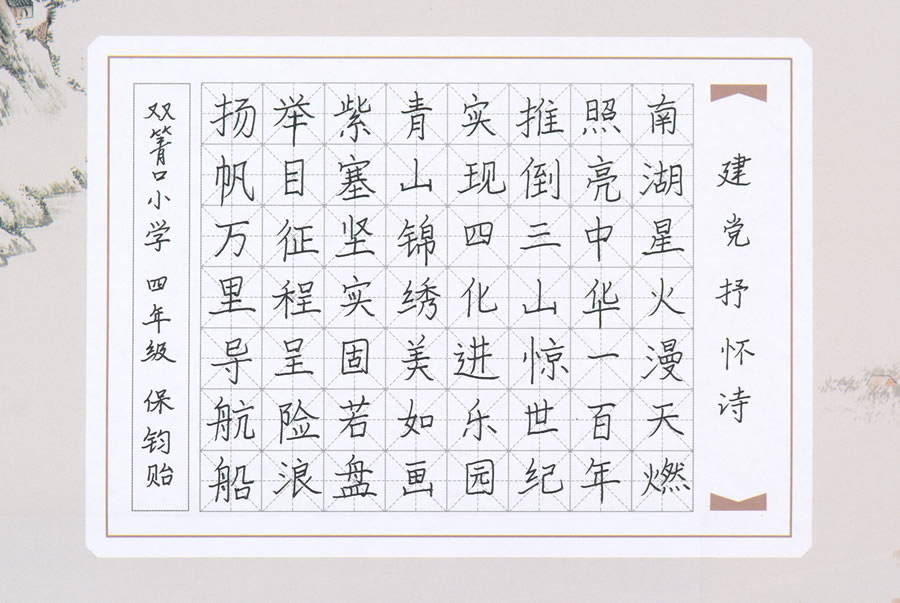 建党抒怀诗
南湖星火漫天燃
照亮中华一百年
推倒三山惊世纪
实现四化进乐园
青山锦绣美如画
紫塞坚实固若盘
举目征程呈险浪
扬帆万里导航船
双箐口小学 四年级 保钧贻